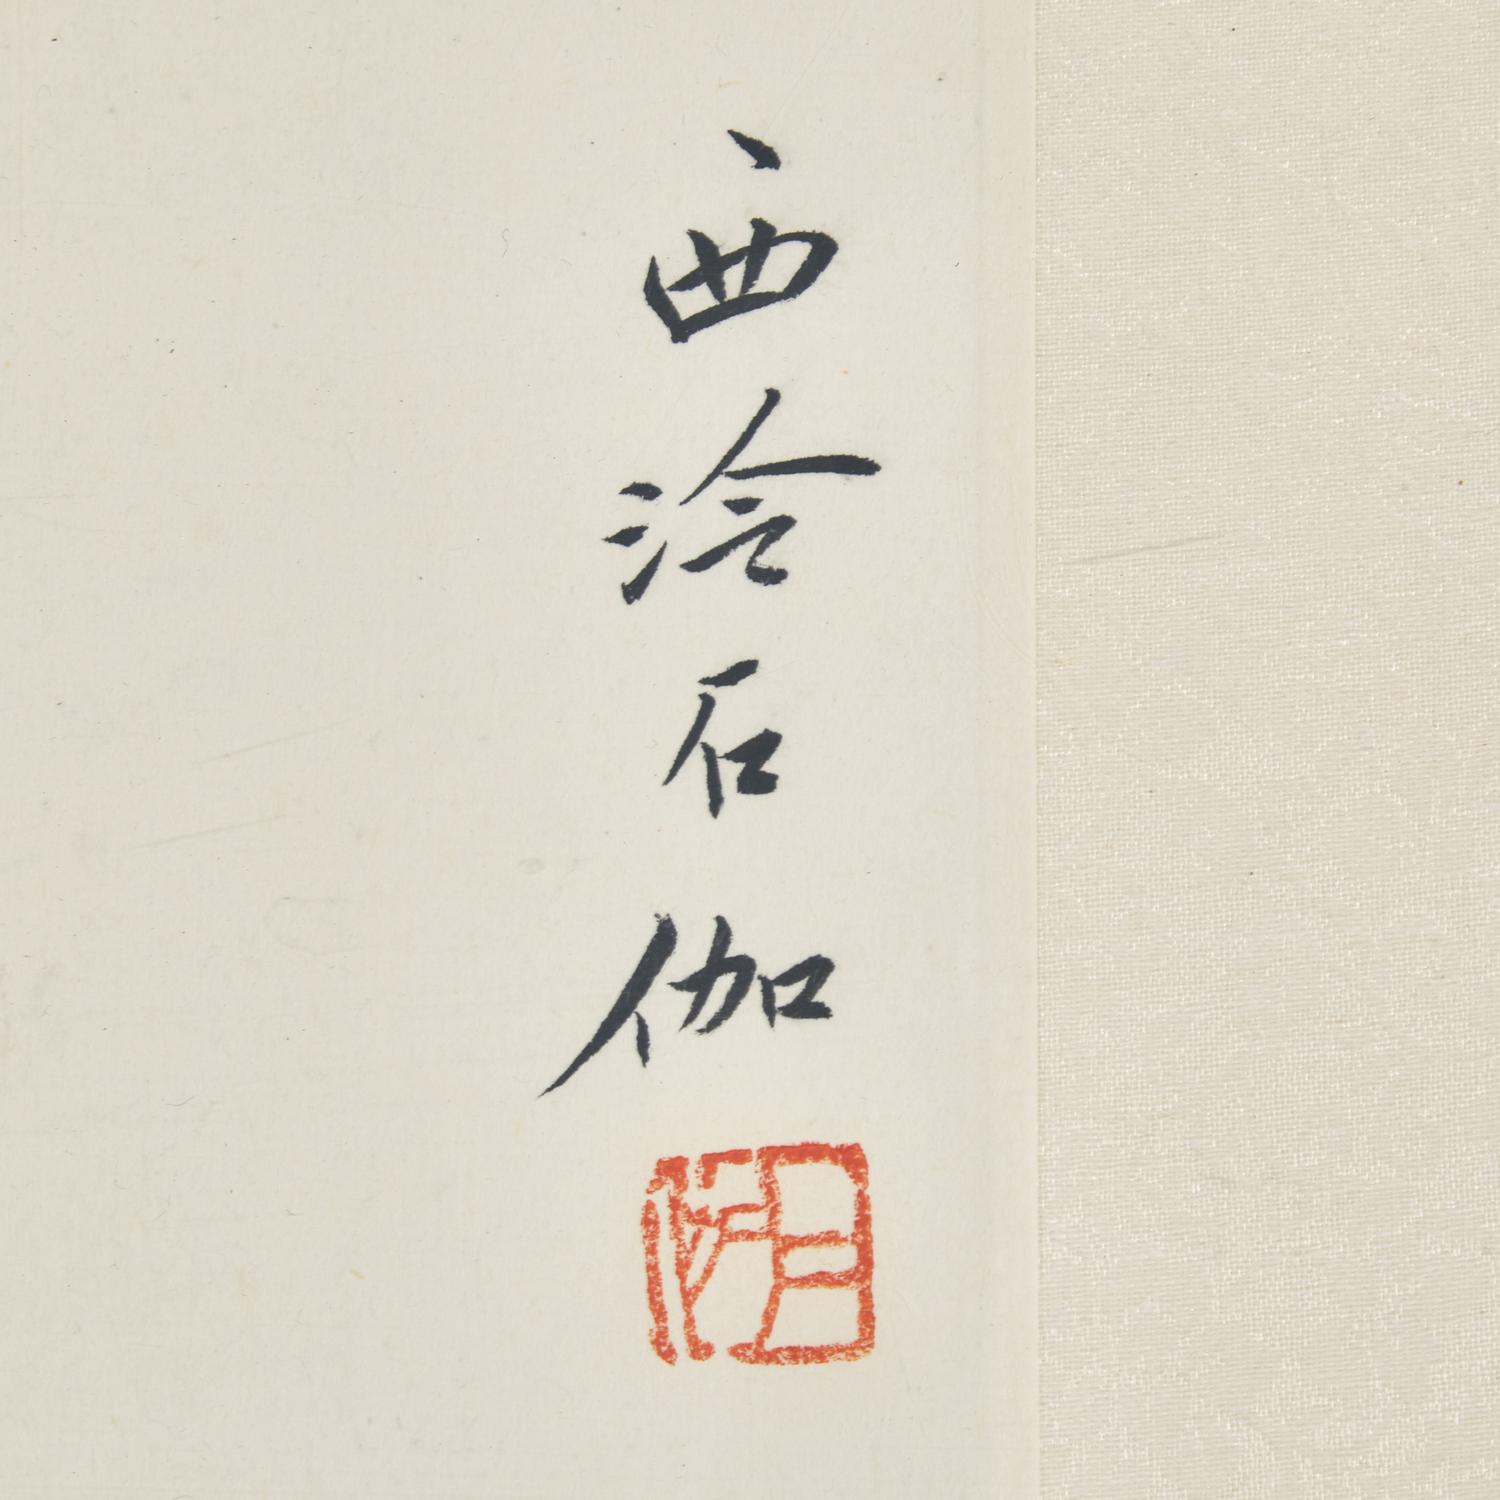 西泠石伽